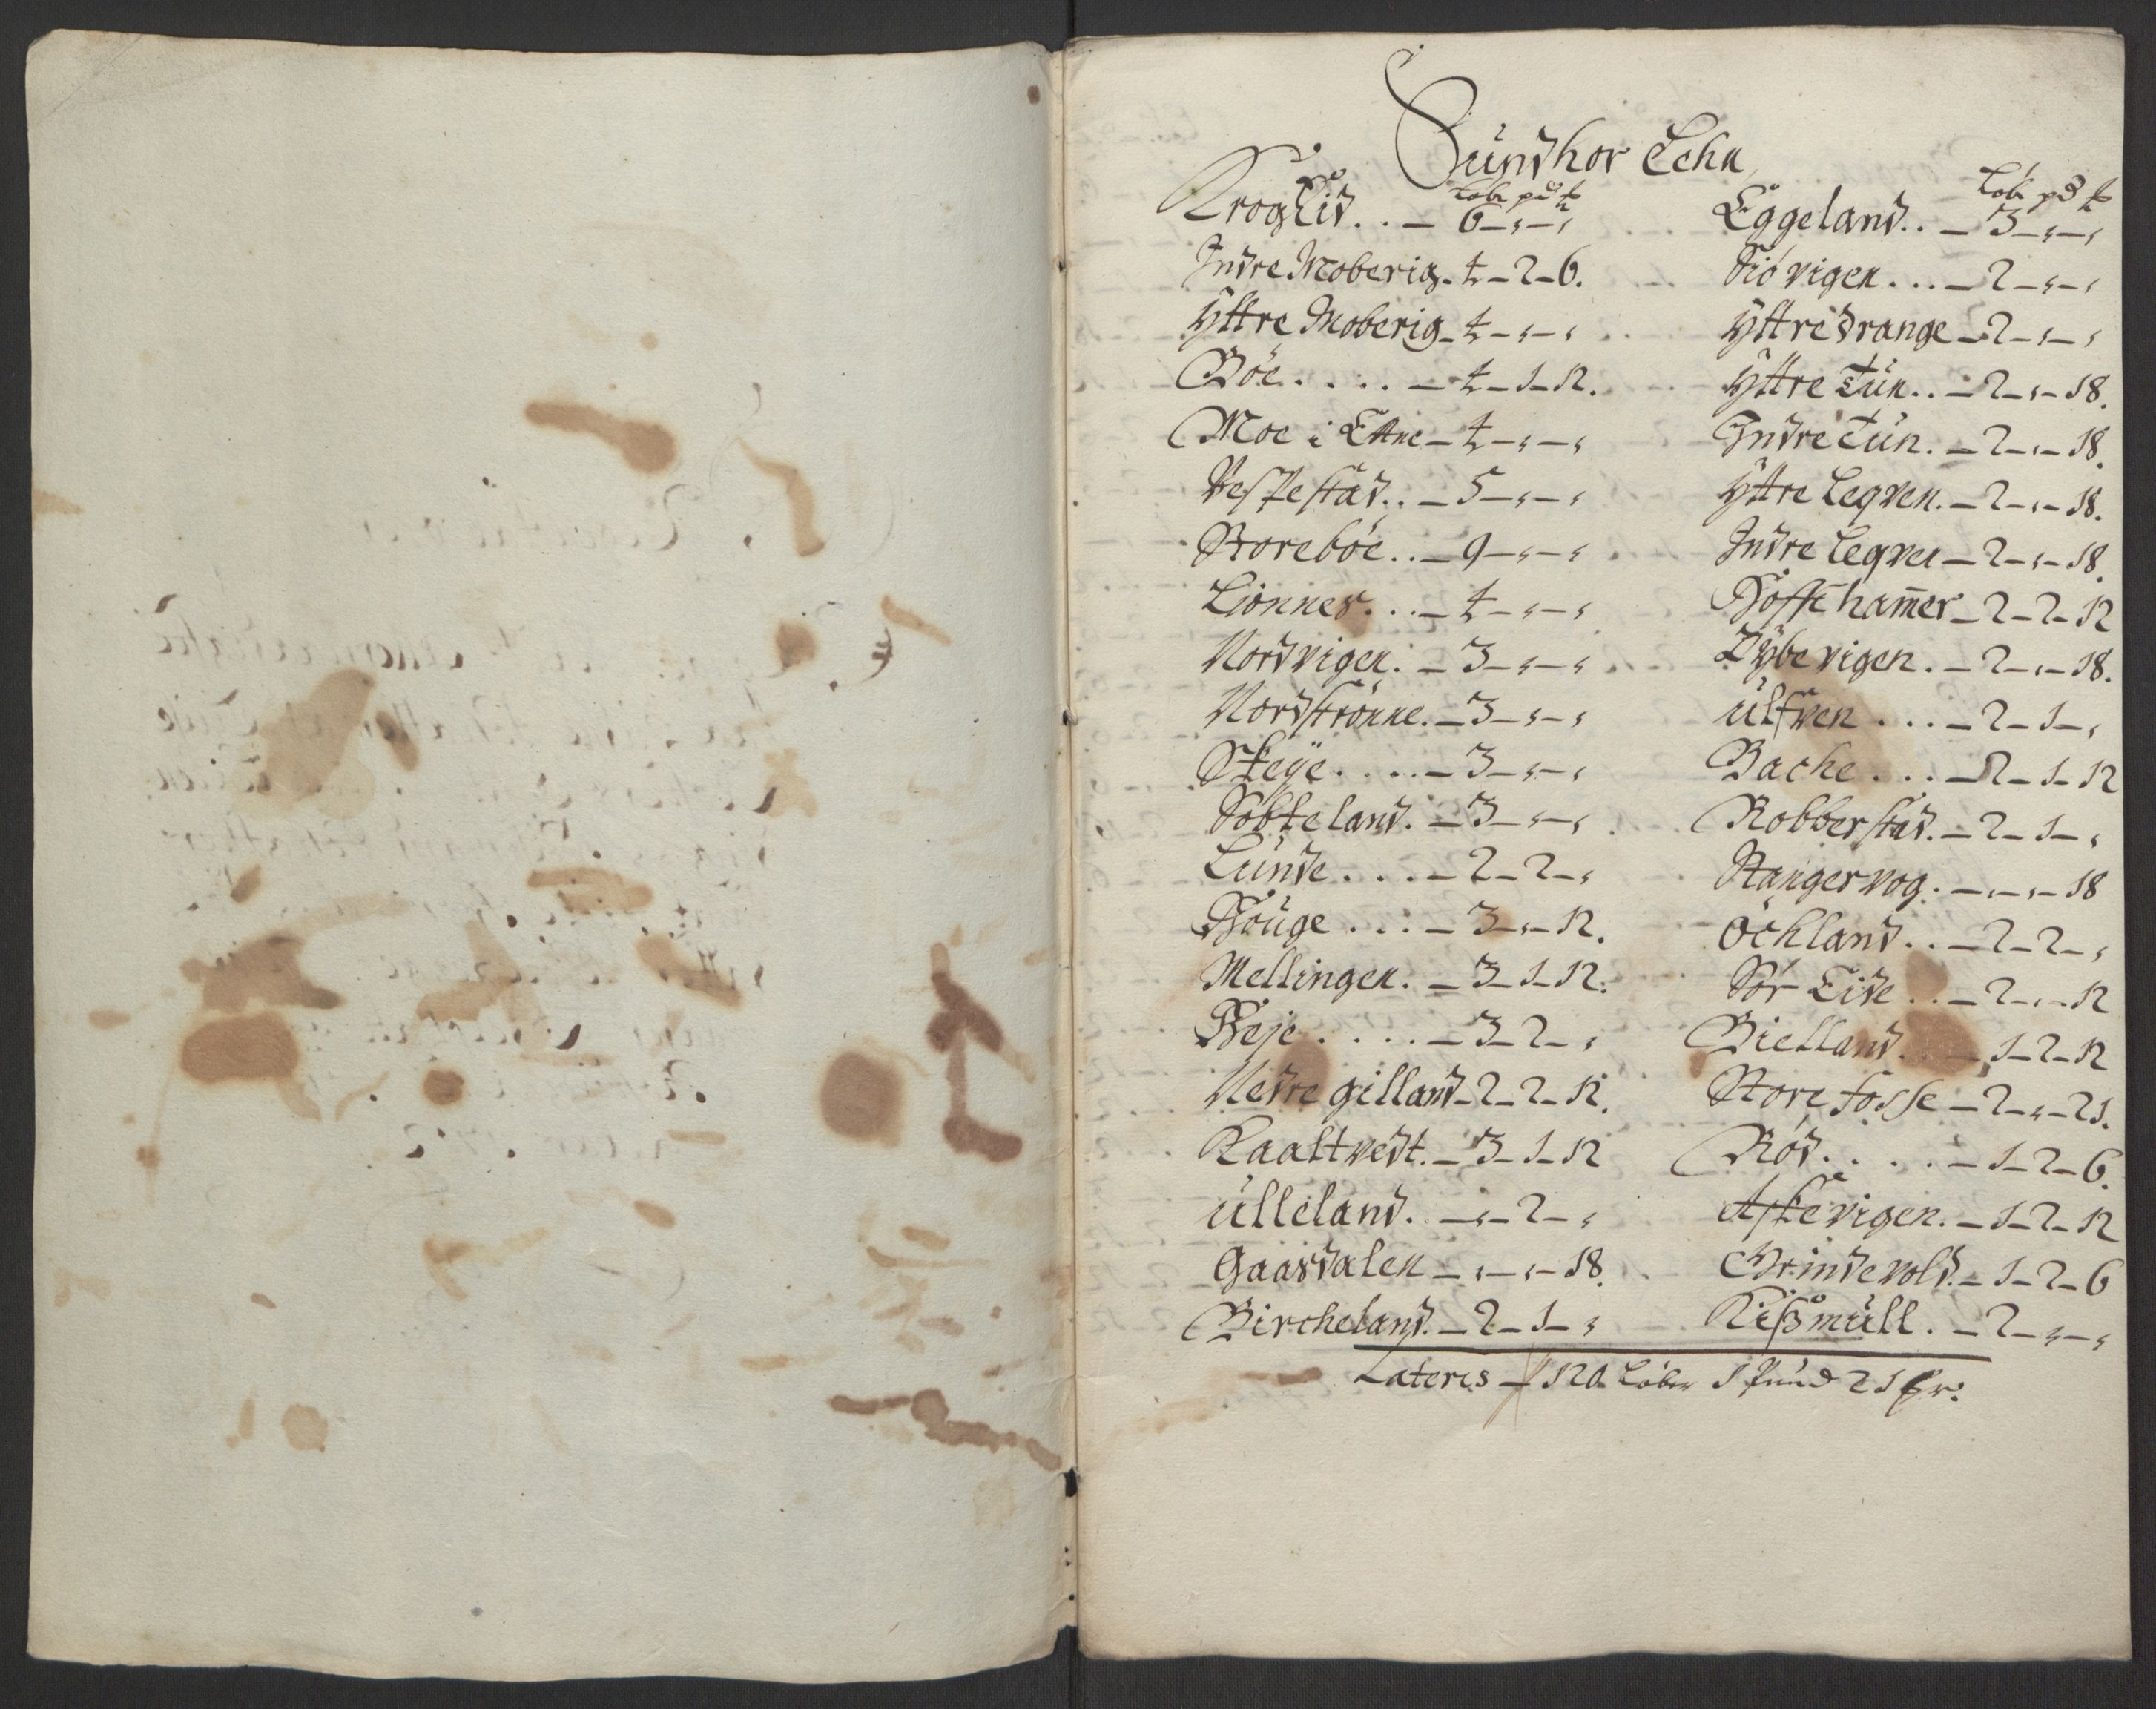 Sündhor Lehn
Løbr pd ℔ Løbr pd ℔
Krog Eid . . — 6 — „ — „
Indre Moberig . 4 — 2 — 6.
Ÿttre Moberig — 4 — „ — „
Böe . . . . . — 4 — 1 — 12.
Moe i Ettne — 4 — „ — „
Vespestad . . — 5 — „ — „
Storeböe . . — 9 — „ — „
Lionnes . . . — 4 — „ — „
Nordvigen . — 3 — „ — „
Nordströnne . — 3 — „ — „
Skeÿe . . . . — 3 — „ — „
Söbteland . — 3 — „ — „
Lünde . . . . — 2 — 2 — „
Höüge . . . — 3 — „ — 12.
Mellingen . — 3 — 1 — 12.
Heje . . . . . — 3 — 2 — „
Nedre gilland — 2 — 2 — 12.
Kaaltvedt . — 3 — 1 — 12
Ülleland . — „ — 2 — „
Gaasdalen — „ — „ — 18.
Bircheland . — 2 — 1 — „
Eggeland . . — 3 — „ — „
Siövigen . . . — 2 — „ — „
Ÿttre Drange — 2 — „ — „
Ÿttre Tün . . — 2 — „ — 18.
Indre Tün . — 2 — „ — 18.
Ÿttre Leqven . — 2 — „ — 18.
Indre Leqven — 2 — „ — 18.
Hofftham̄er — 2 — 2 — 12
Dÿbevigen . — 2 — „ — 18.
Ülfven . . . — 2 — 1 — „
Bache . . . — 2 — 1 — 12
Robberstad . — 2 — 1 — „
Stangervog . — „ — „ — 18
Öchland . . — 2 — 2 — „
Sör Eide . . — 2 — „ — 12
Bielland . . — 1 — 2 — 12
Store Fosse — 2 — „ — 21.
Röd . . . . . — 1 — 2 — 6.
Askevigen . — 1 — 2 — 12
Grindevold . — 1 — 2 — 6
Kißmüll . — 2 — „ — „
Lateris — 120 Löber 1 Pund 21 ℔r: